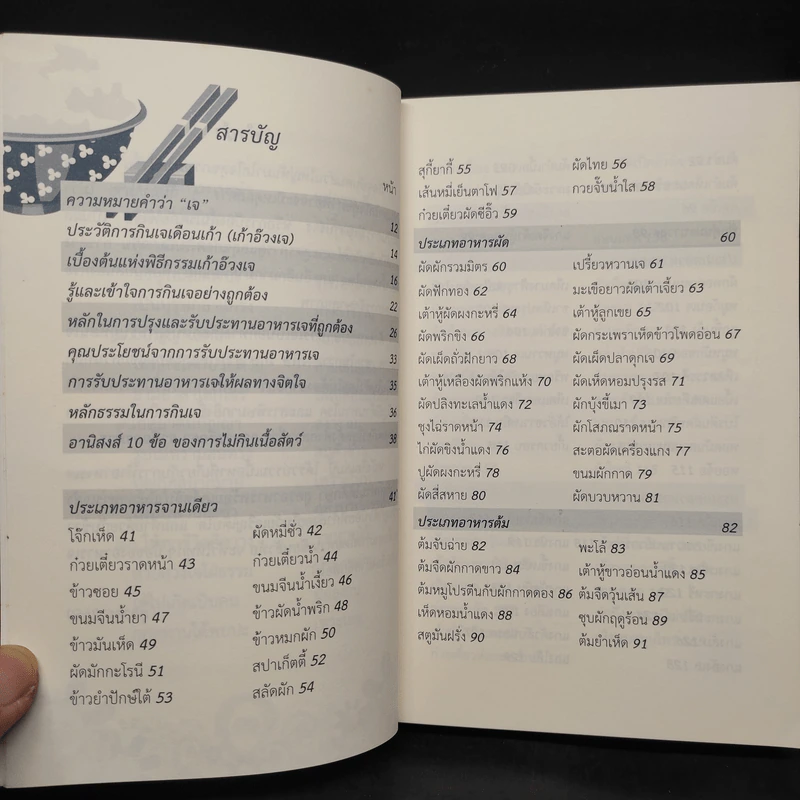 สารบัญ
หน้า
ความหมายคำว่า “เจ” 12
ประวัติการกินเจเดือนเก้า (เก้าอ๊วงเจ) 14
เบื้องต้นแห่งพิธีกรรมเก้าอ๊วงเจ 16
รู้และเข้าใจการกินเจอย่างถูกต้อง 22
หลักในการปรุงและรับประทานอาหารเจที่ถูกต้อง 26
คุณประโยชน์จากการรับประทานอาหารเจ 33
การรับประทานอาหารเจให้ผลทางจิตใจ 35
หลักธรรมในการกินเจ 36
อานิสงส์ 10 ข้อ ของการไม่กินเนื้อสัตว์ 38
ประเภทอาหารจานเดียว 41
โจ๊กเห็ด 41 ผัดหมี่ซั่ว 42
ก๋วยเตี๋ยวราดหน้า 43 ก๋วยเตี๋ยวน้ำ 44
ข้าวซอย 45 ขนมจีนน้ำเงี้ยว 46
ขนมจีนน้ำยา 47 ข้าวผัดน้ำพริก 48
ข้าวมันเห็ด 49 ข้าวหมกผัก 50
ผัดมักกะโรนี 51 สปาเก็ตตี้ 52
ข้าวยำปักษ์ใต้ 53 สลัดผัก 54
สุกี้ยากี้ 55 ผัดไทย 56
เส้นหมี่เย็นตาโฟ 57 กวยจั๊บน้ำใส 58
ก๋วยเตี๋ยวผัดซีอิ๊ว 59
ประเภทอาหารผัด 60
ผัดผักรวมมิตร 60 เปรี้ยวหวานเจ 61
ผัดฟักทอง 62 มะเขือยาวผัดเต้าเจี้ยว 63
เต้าหู้ผัดผงกะหรี่ 64 เต้าหู้ลูกเขย 65
ผัดพริกขิง 66 ผัดกระเพราเห็ดข้าวโพดอ่อน 67
ผัดเผ็ดถั่วฝักยาว 68 ผัดเผ็ดปลาดุกเจ 69
เต้าหู้เหลืองผัดพริกแห้ง 70 ผัดเห็ดหอมปรุงรส 71
ผัดปลิงทะเลน้ำแดง 72 ผักบุ้งขี้เมา 73
ซุงไฉ่ราดหน้า 74 ผักโสภณราดหน้า 75
ไก่ผัดขิงน้ำแดง 76 สะตอผัดเครื่องแกง 77
ปูผัดผงกะหรี่ 78 ขนมผักกาด 79
ผัดสี่สหาย 80 ผัดบวบหวาน 81
ประเภทอาหารต้ม 82
ต้มจับฉ่าย 82 พะโล้ 83
ต้มจืดผักกาดขาว 84 เต้าหู้ขาวอ่อนน้ำแดง 85
ต้มหมูโปรตีนกับผักกาดดอง 86 ต้มจืดวุ้นเส้น 87
เห็ดหอมน้ำแดง 88 ซุบผักฤดูร้อน 89
สตูมันฝรั่ง 90 ต้มยำเห็ด 91